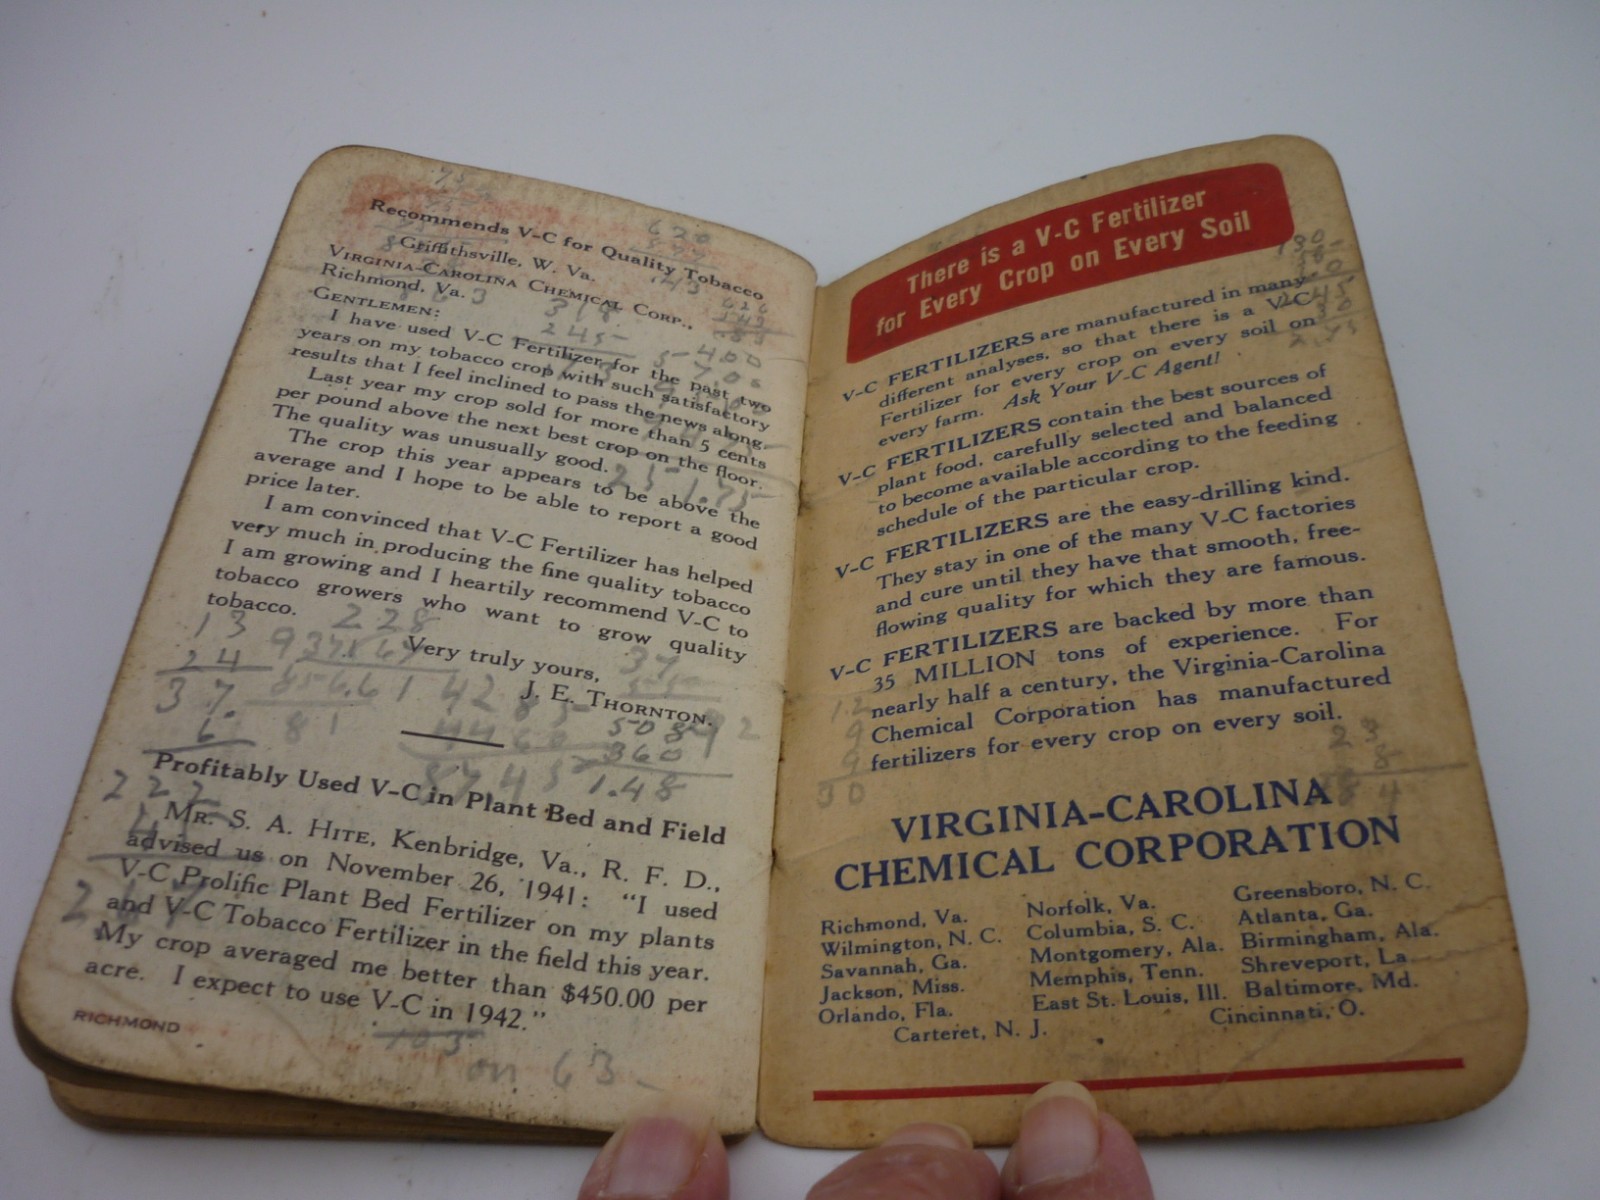 Recommends V-C for Quality Tobacco
Griffithsville, W. Va.
VIRGINIA-CAROLINA CHEMICAL CORP.,
Richmond, Va.
GENTLEMEN:
I have used V-C Fertilizer for the past two
years on my tobacco crop with such satisfactory
results that I feel inclined to pass the news along.
Last year my crop sold for more than 5 cents
per pound above the next best crop on the floor.
The quality was unusually good.
The crop this year appears to be above the
average and I hope to be able to report a good
price later.
I am convinced that V-C Fertilizer has helped
very much in producing the fine quality tobacco
I am growing and I heartily recommend V-C to
tobacco growers who want to grow quality
tobacco.
Very truly yours,
J. E. THORNTON.
228
13
24
37.
6
222
508
360
1.48
251.75
Profitably Used V-C in Plant Bed and Field
MR. S. A. HITE, Kenbridge, Va., R. F. D.,
advised us on November 26, 1941: "I used
V-C Prolific Plant Bed Fertilizer on my plants
and V-C Tobacco Fertilizer in the field this year.
My crop averaged me better than $450.00 per
acre. I expect to use V-C in 1942."
RICHMOND
103
on 63
There is a V-C Fertilizer
for Every Crop on Every Soil
V-C FERTILIZERS are manufactured in many
different analyses, so that there is a V-C
Fertilizer for every crop on every soil on
every farm. Ask Your V-C Agent!
V-C FERTILIZERS contain the best sources of
plant food, carefully selected and balanced
to become available according to the feeding
schedule of the particular crop.
V-C FERTILIZERS are the easy-drilling kind.
They stay in one of the many V-C factories
and cure until they have that smooth, free-
flowing quality for which they are famous.
V-C FERTILIZERS are backed by more than
35 MILLION tons of experience. For
nearly half a century, the Virginia-Carolina
Chemical Corporation has manufactured
fertilizers for every crop on every soil.
12
9
9
30
VIRGINIA-CAROLINA
CHEMICAL CORPORATION
Richmond, Va. Norfolk, Va. Greensboro, N. C.
Wilmington, N. C. Columbia, S. C. Atlanta, Ga.
Savannah, Ga. Montgomery, Ala. Birmingham, Ala.
Jackson, Miss. Memphis, Tenn. Shreveport, La
Orlando, Fla. East St. Louis, Ill. Baltimore, Md.
Carteret, N. J. Cincinnati, O.